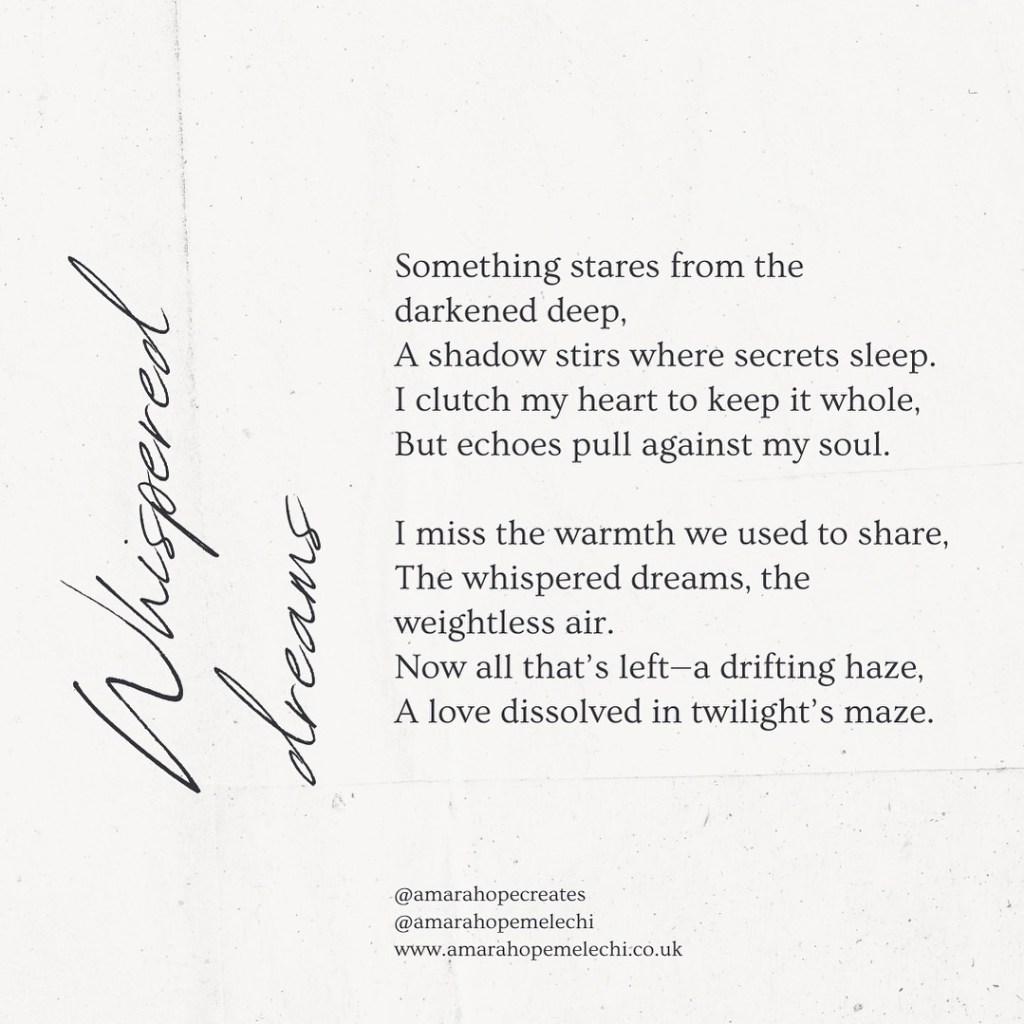 Whispered
dreams
Something stares from the
darkened deep,
A shadow stirs where secrets sleep.
I clutch my heart to keep it whole,
But echoes pull against my soul.
I miss the warmth we used to share,
The whispered dreams, the
weightless air.
Now all that’s left—a drifting haze,
A love dissolved in twilight’s maze.
@amarahopecreates
@amarahopemelechi
www.amarahopemelechi.co.uk